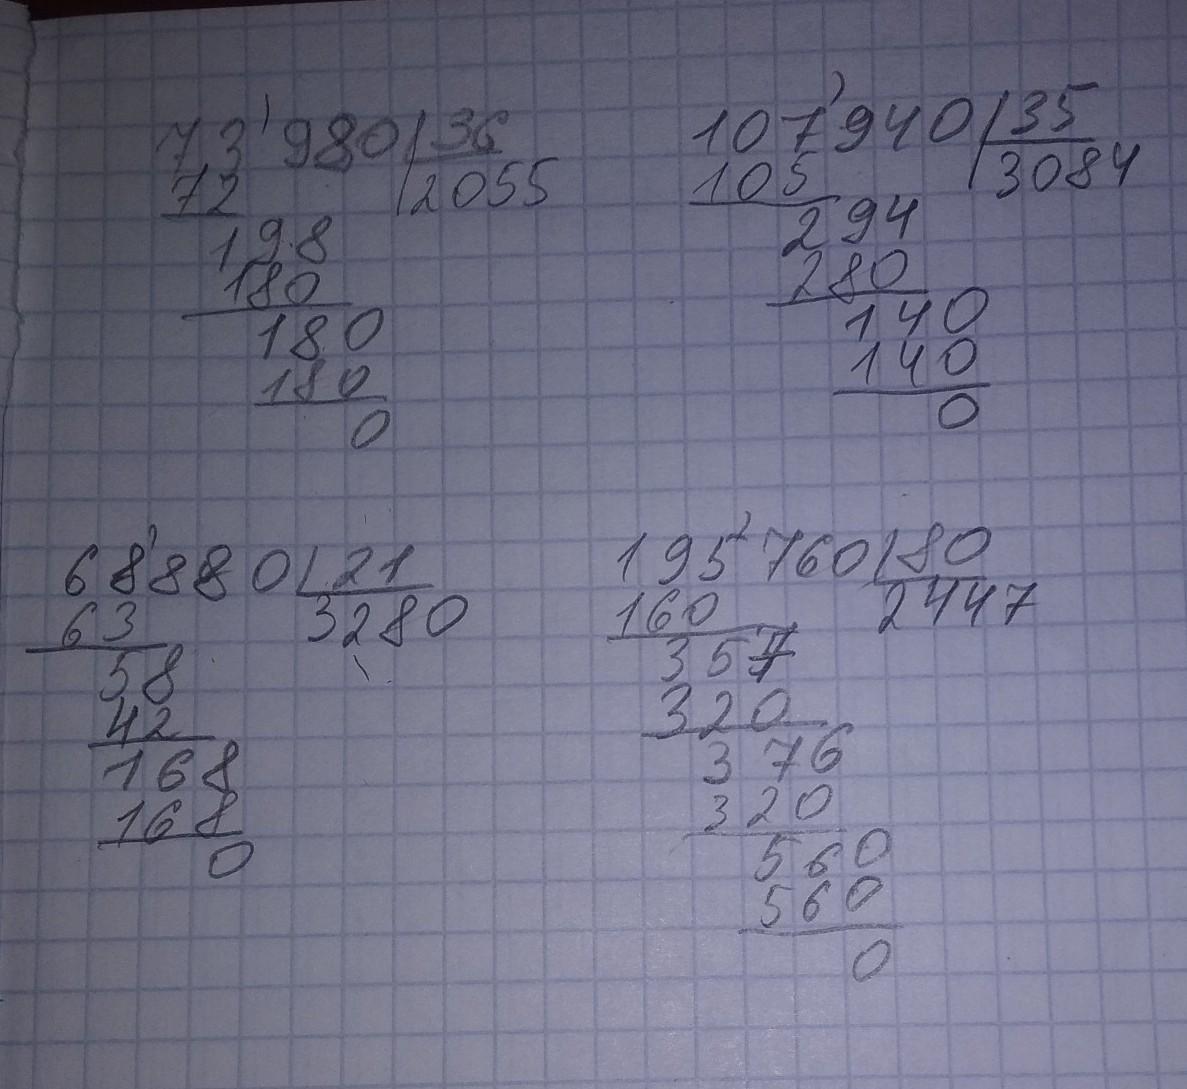 73'980 | 36
72 | 2055
198
180
180
180
0
107'940 | 35
105 | 3084
294
280
140
140
0
68'880 | 21
63 3280
58
42
168
168
0
195'760 | 80
160 2447
357
320
376
320
560
560
0